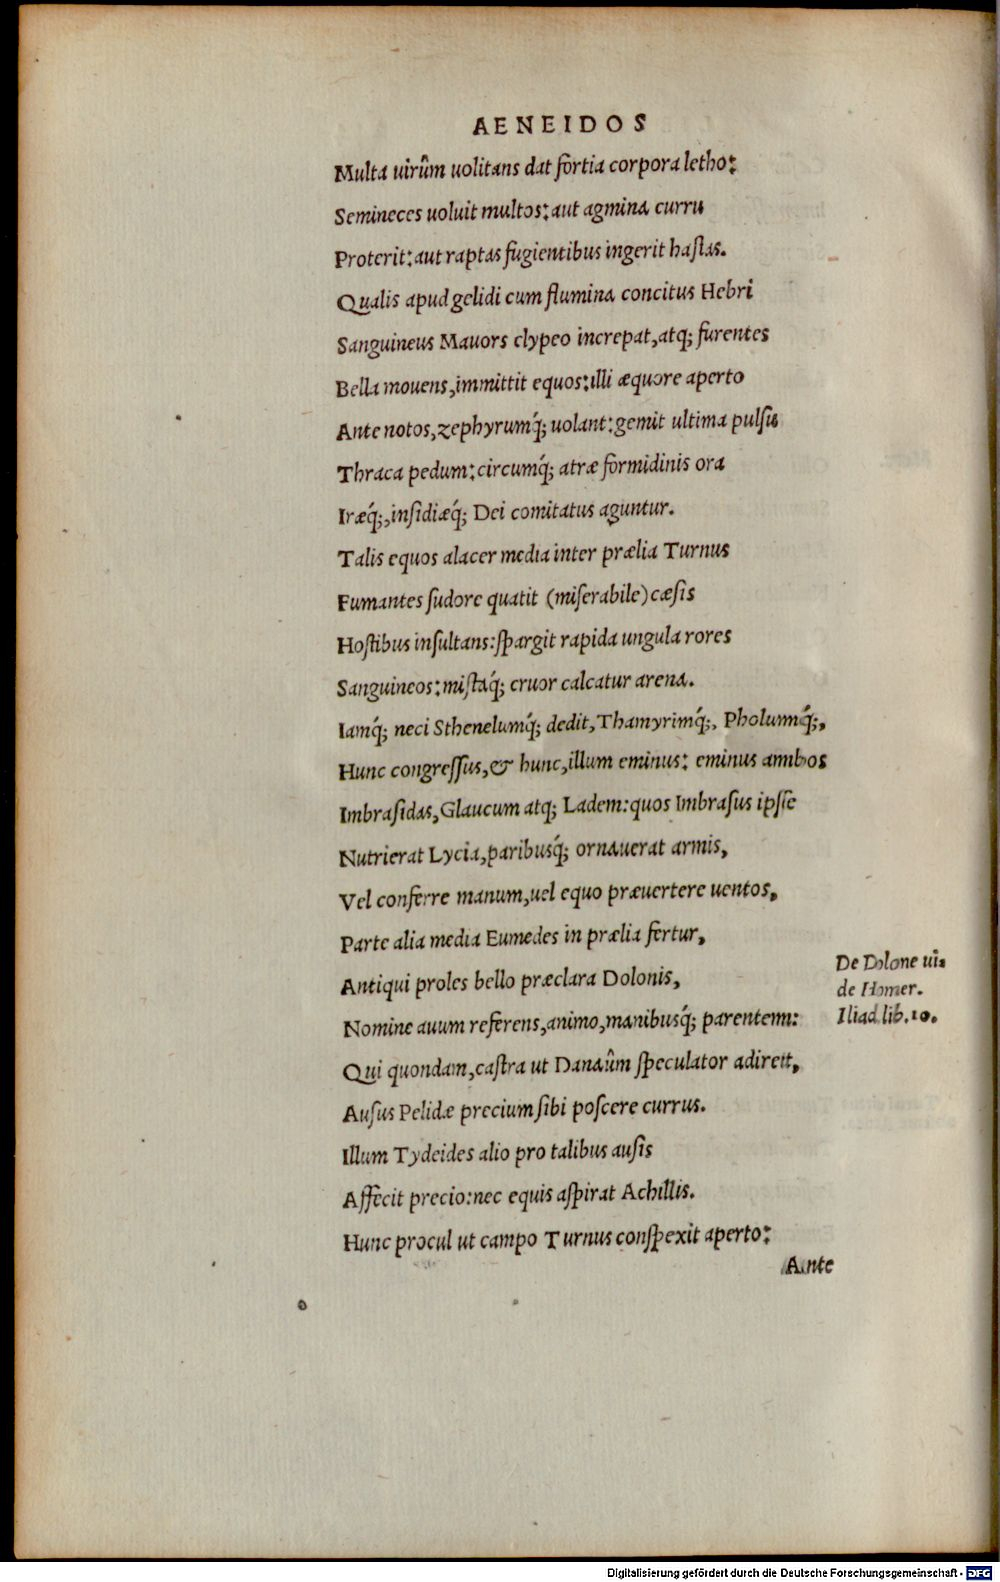 AENEIDOS
Multa uirûm uolitans dat fortia corpora letho:
Semineces uoluit multos: aut agmina curru
Proterit: aut raptas fugientibus ingerit hastas.
Qualis apud gelidi cum flumina concitus Hebri
Sanguineus Mauors clypeo increpat, atq; furentes
Bella mouens, immittit equos: illi æquore aperto
Ante notos, zephyrumq́; uolant: gemit ultima pulsu
Thraca pedum: circumq́; atræ formidinis ora
Iræq́;, insidiæq́; Dei comitatus aguntur.
Talis equos alacer media inter prælia Turnus
Fumantes sudore quatit (miserabile) cæsis
Hostibus insultans: spargit rapida ungula rores
Sanguineos: mistaq́; cruor calcatur arena.
Iamq́; neci Sthenelumq́; dedit, Thamyrimq́;, Pholumq́;,
Hunc congressus, & hunc, illum eminus: eminus ambos
Imbrasidas, Glaucum atq; Ladem: quos Imbrasus ipse
Nutrierat Lycia, paribusq́; ornauerat armis,
Vel conferre manum, uel equo præuertere uentos,
Parte alia media Eumedes in prælia fertur,
Antiqui proles bello præclara Dolonis,
Nomine auum referens, animo, manibusq́; parentem:
Qui quondam, castra ut Danaûm speculator adiret,
Ausus Pelidæ precium sibi poscere currus.
Illum Tydeides alio pro talibus ausis
Affecit precio: nec equis aspirat Achillis.
Hunc procul ut campo Turnus conspexit aperto:
Ante
De Dolone ui=
de Homer.
Iliad. lib. 10.
Digitalisierung gefördert durch die Deutsche Forschungsgemeinschaft - DFG